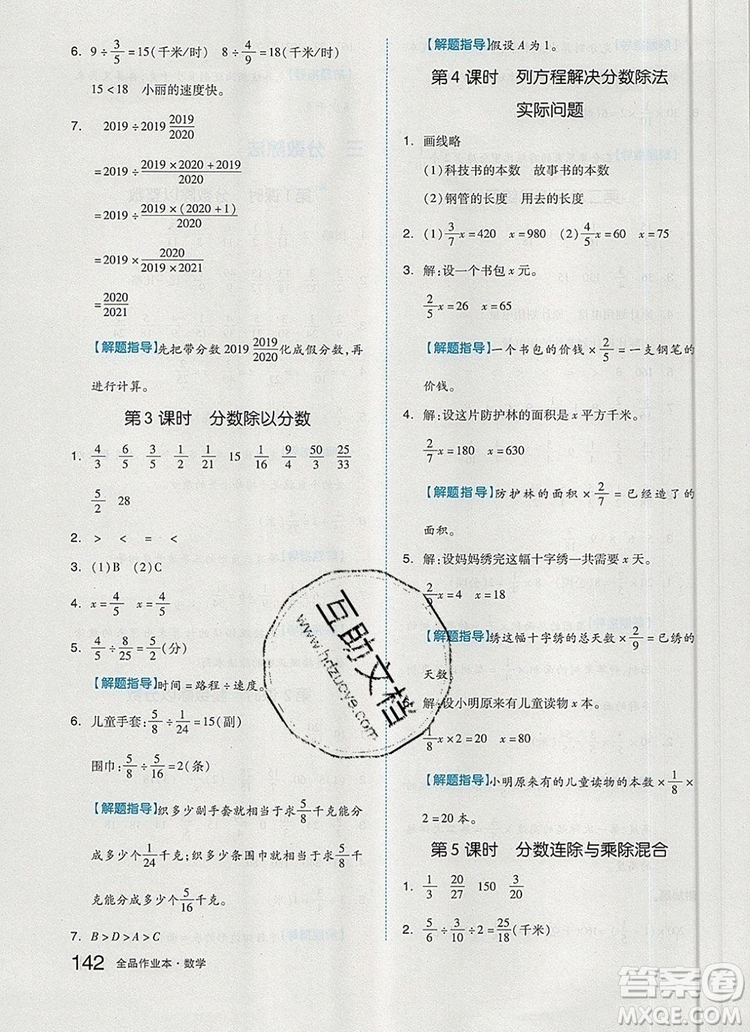 6. 9÷3/5=15(千米/时) 8÷4/9=18(千米/时)
15<18 小丽的速度快。
7. 2019÷2019 2019/2020
=2019÷(2019×2020+2019)/2020
=2019÷2019×(2020+1)/2020
=2019×2020/(2019×2021)
=2020/2021
【解题指导】先把带分数2019 2019/2020化成假分数,再
进行计算。
第3课时 分数除以分数
1. 4/3 6/5 1/2 1/2 15 1/16 9/4 50/3 33/25
5/2 28
2. > < = <
3. (1)B (2)C
4. x=4/5 x=4/5
5. 4/5÷8/25=5/2(分)
【解题指导】时间=路程÷速度。
6. 儿童手套:5/8÷1/24=15(副)
围巾:5/8÷5/16=2(条)
【解题指导】织多少副手套就相当于求5/8千克能分
成多少个1/24千克;织多少条围巾就相当于求5/8千
克能分成多少个5/16千克。
7. B>D>A>C
142 全品作业本·数学
【解题指导】假设A为1。
第4课时 列方程解决分数除法
实际问题
1. 画线略
(1)科技书的本数 故事书的本数
(2)钢管的长度 用去的长度
2. (1)3/7x=420 x=980 (2)4/5x=60 x=75
3. 解:设一个书包x元。
2/5x=26 x=65
【解题指导】一个书包的价钱×2/5=一支钢笔的
价钱。
4. 解:设这片防护林的面积是x平方千米。
2/7x=180 x=630
【解题指导】防护林的面积×2/7=已经完成的
面积。
5. 解:设妈妈绣完这幅十字绣一共需要x天。
2/9x=4 x=18
【解题指导】绣这幅十字绣的总天数×2/9=已绣的
天数。
6. 解:设小明原来有儿童读物x本。
1/8x×2=20 x=80
【解题指导】小明原来有的儿童读物的本数×1/8×
2=20本。
第5课时 分数连除与乘除混合
1. 1/3 20/27 150 3/20
2. 2/5÷1/6÷2/3=18/5(千米)
互助文档
www.hdzuoye.com
答案圈
MXQE.COM